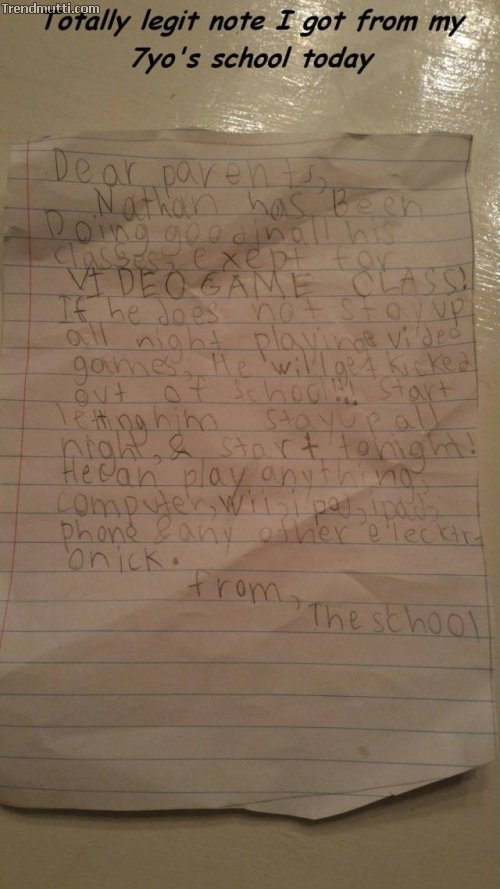 Trendmutti.com
Totally legit note I got from my
7yo's school today
Dear parents,
Nathan has Been
Doing good in all his
classes exept for
VIDEO GAME CLASS!
If he does not stay up
all night playing video
games, He will get kicked
out of school!!! Start
letting him stay up all
night, & start tonight!
He can play anything,
computer, Wii, i pod, ipad,
phone & any other elecktr-
onick.
from,
The school